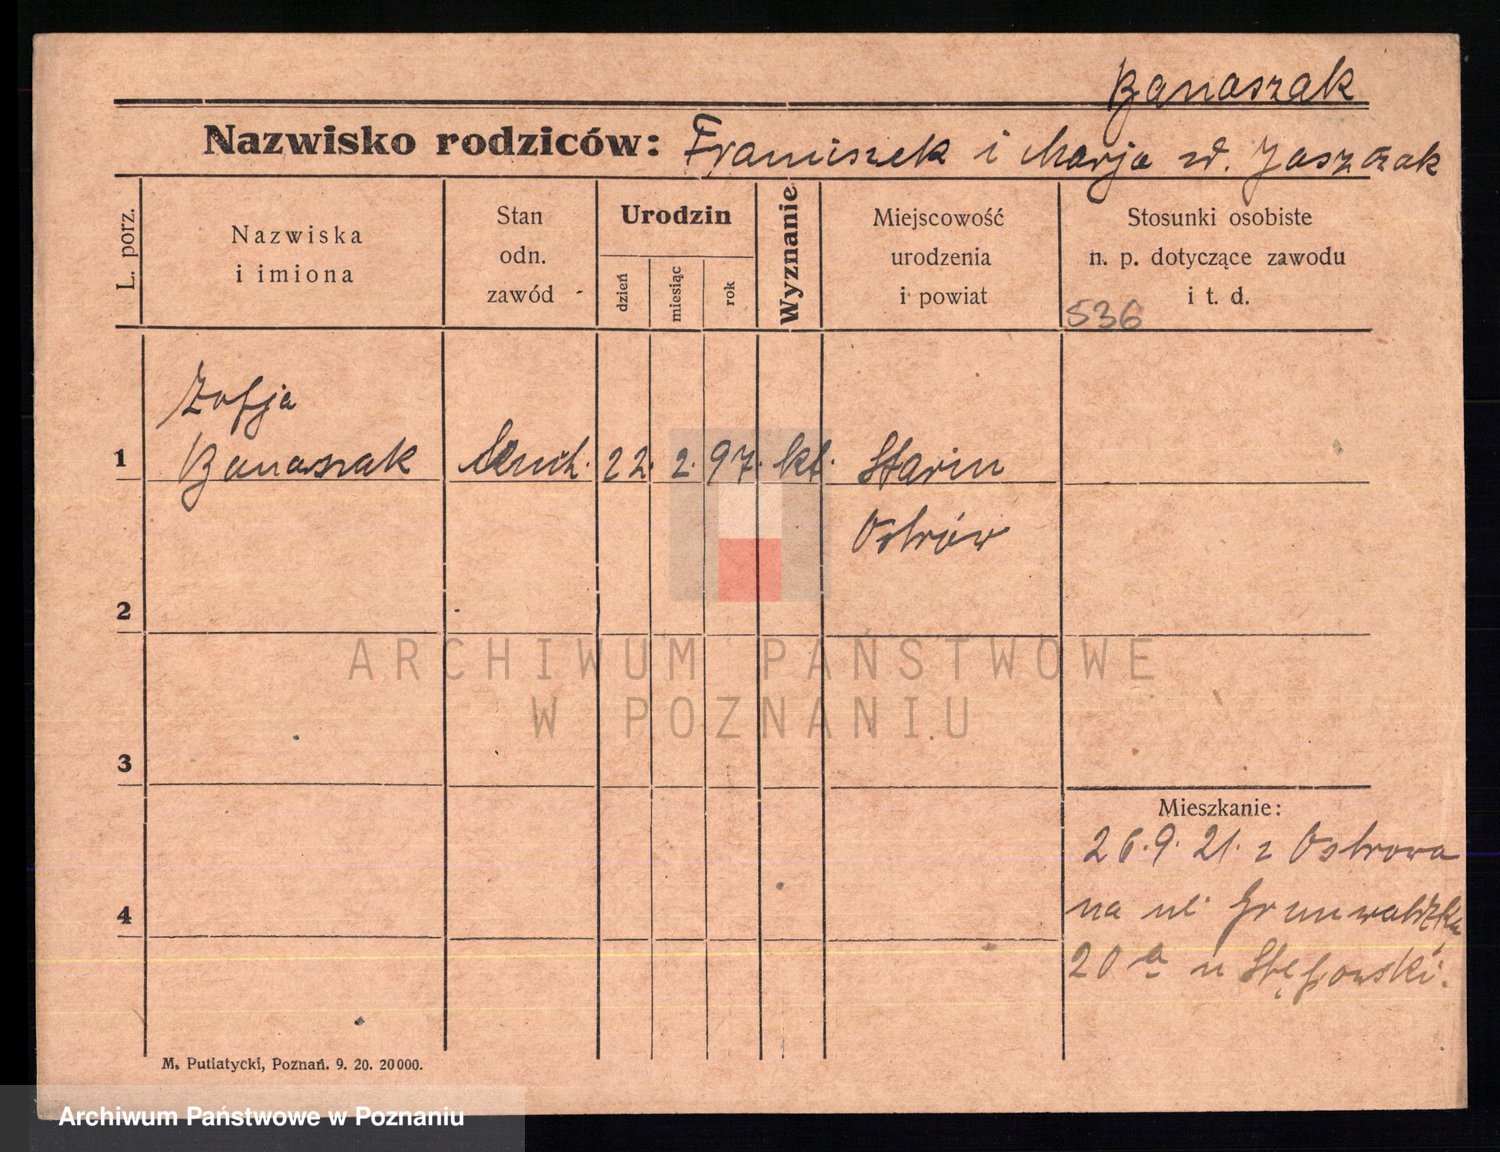 Banaszak
Nazwisko rodziców: Franciszek i Marja zd. Jaszczak
L. porz.
Nazwiska
i imiona
Stan
odn.
zawód
Urodzin
dzień
miesiąc
rok
Wyznanie
Miejscowość
urodzenia
i powiat
Stosunki osobiste
n. p. dotyczące zawodu
i t. d.
536
Zofja
1 Banaszak 22. 2. 97. kt.
Ostrów
2
3
Mieszkanie:
26. 9. 21. z Ostrowa
4 na ul Grunwaldzka
20 a u
M. Putiatycki, Poznań. 9. 20. 20000.
ARCHIWUM PAŃSTWOWE
W POZNANIU
Archiwum Państwowe w Poznaniu